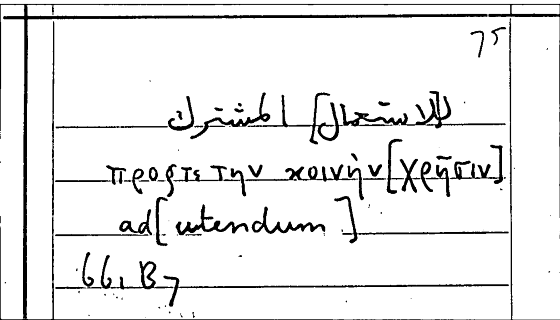 75
[للاستعمال] المشترك
προς τε την κοινὴν [χρῆσιν]
ad [utendum]
66, B7